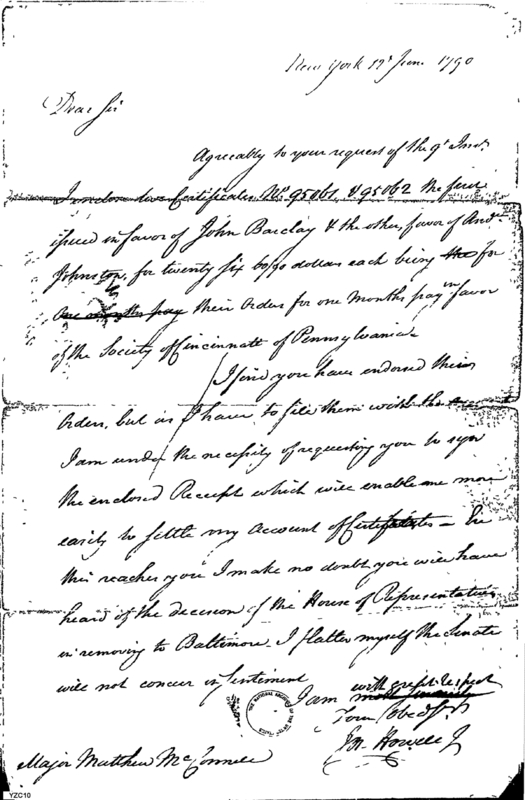 New York 12th June 1790
Dear Sir
Agreeably to your request of the 9th Inst.
I enclose two Certificates No. 95061 & 95062 the first
issued in favor of John Barclay & the other, favor of And.w
Johnston, for twenty six 60/90 dollars each being the for
One months pay their Orders for one months pay in favor
of the Society of Cincinnati of Pennsylvania.
I find you have endorsed their
Orders, but as I have to file them with the
I am under the necessity of requesting you to sign
the enclosed Receipt which will enable me more
easily to settle my Account of Certificates – Ere
this reaches you I make no doubt you will have
heard of the decision of the House of Representatives
in removing to Baltimore. I flatter myself the Senate
will not concur in Sentiment
I am with great respect
most sincerely
Your obed. St.
Jos. Howell Jr
Major Matthew McConnell
THE NATIONAL ARCHIVES OF THE UNITED STATES
YZC10